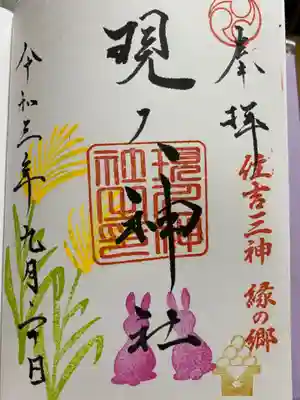 奉拝
住吉三神 縁の郷
現人神社
現人神
社之印
令和三年九月二十日